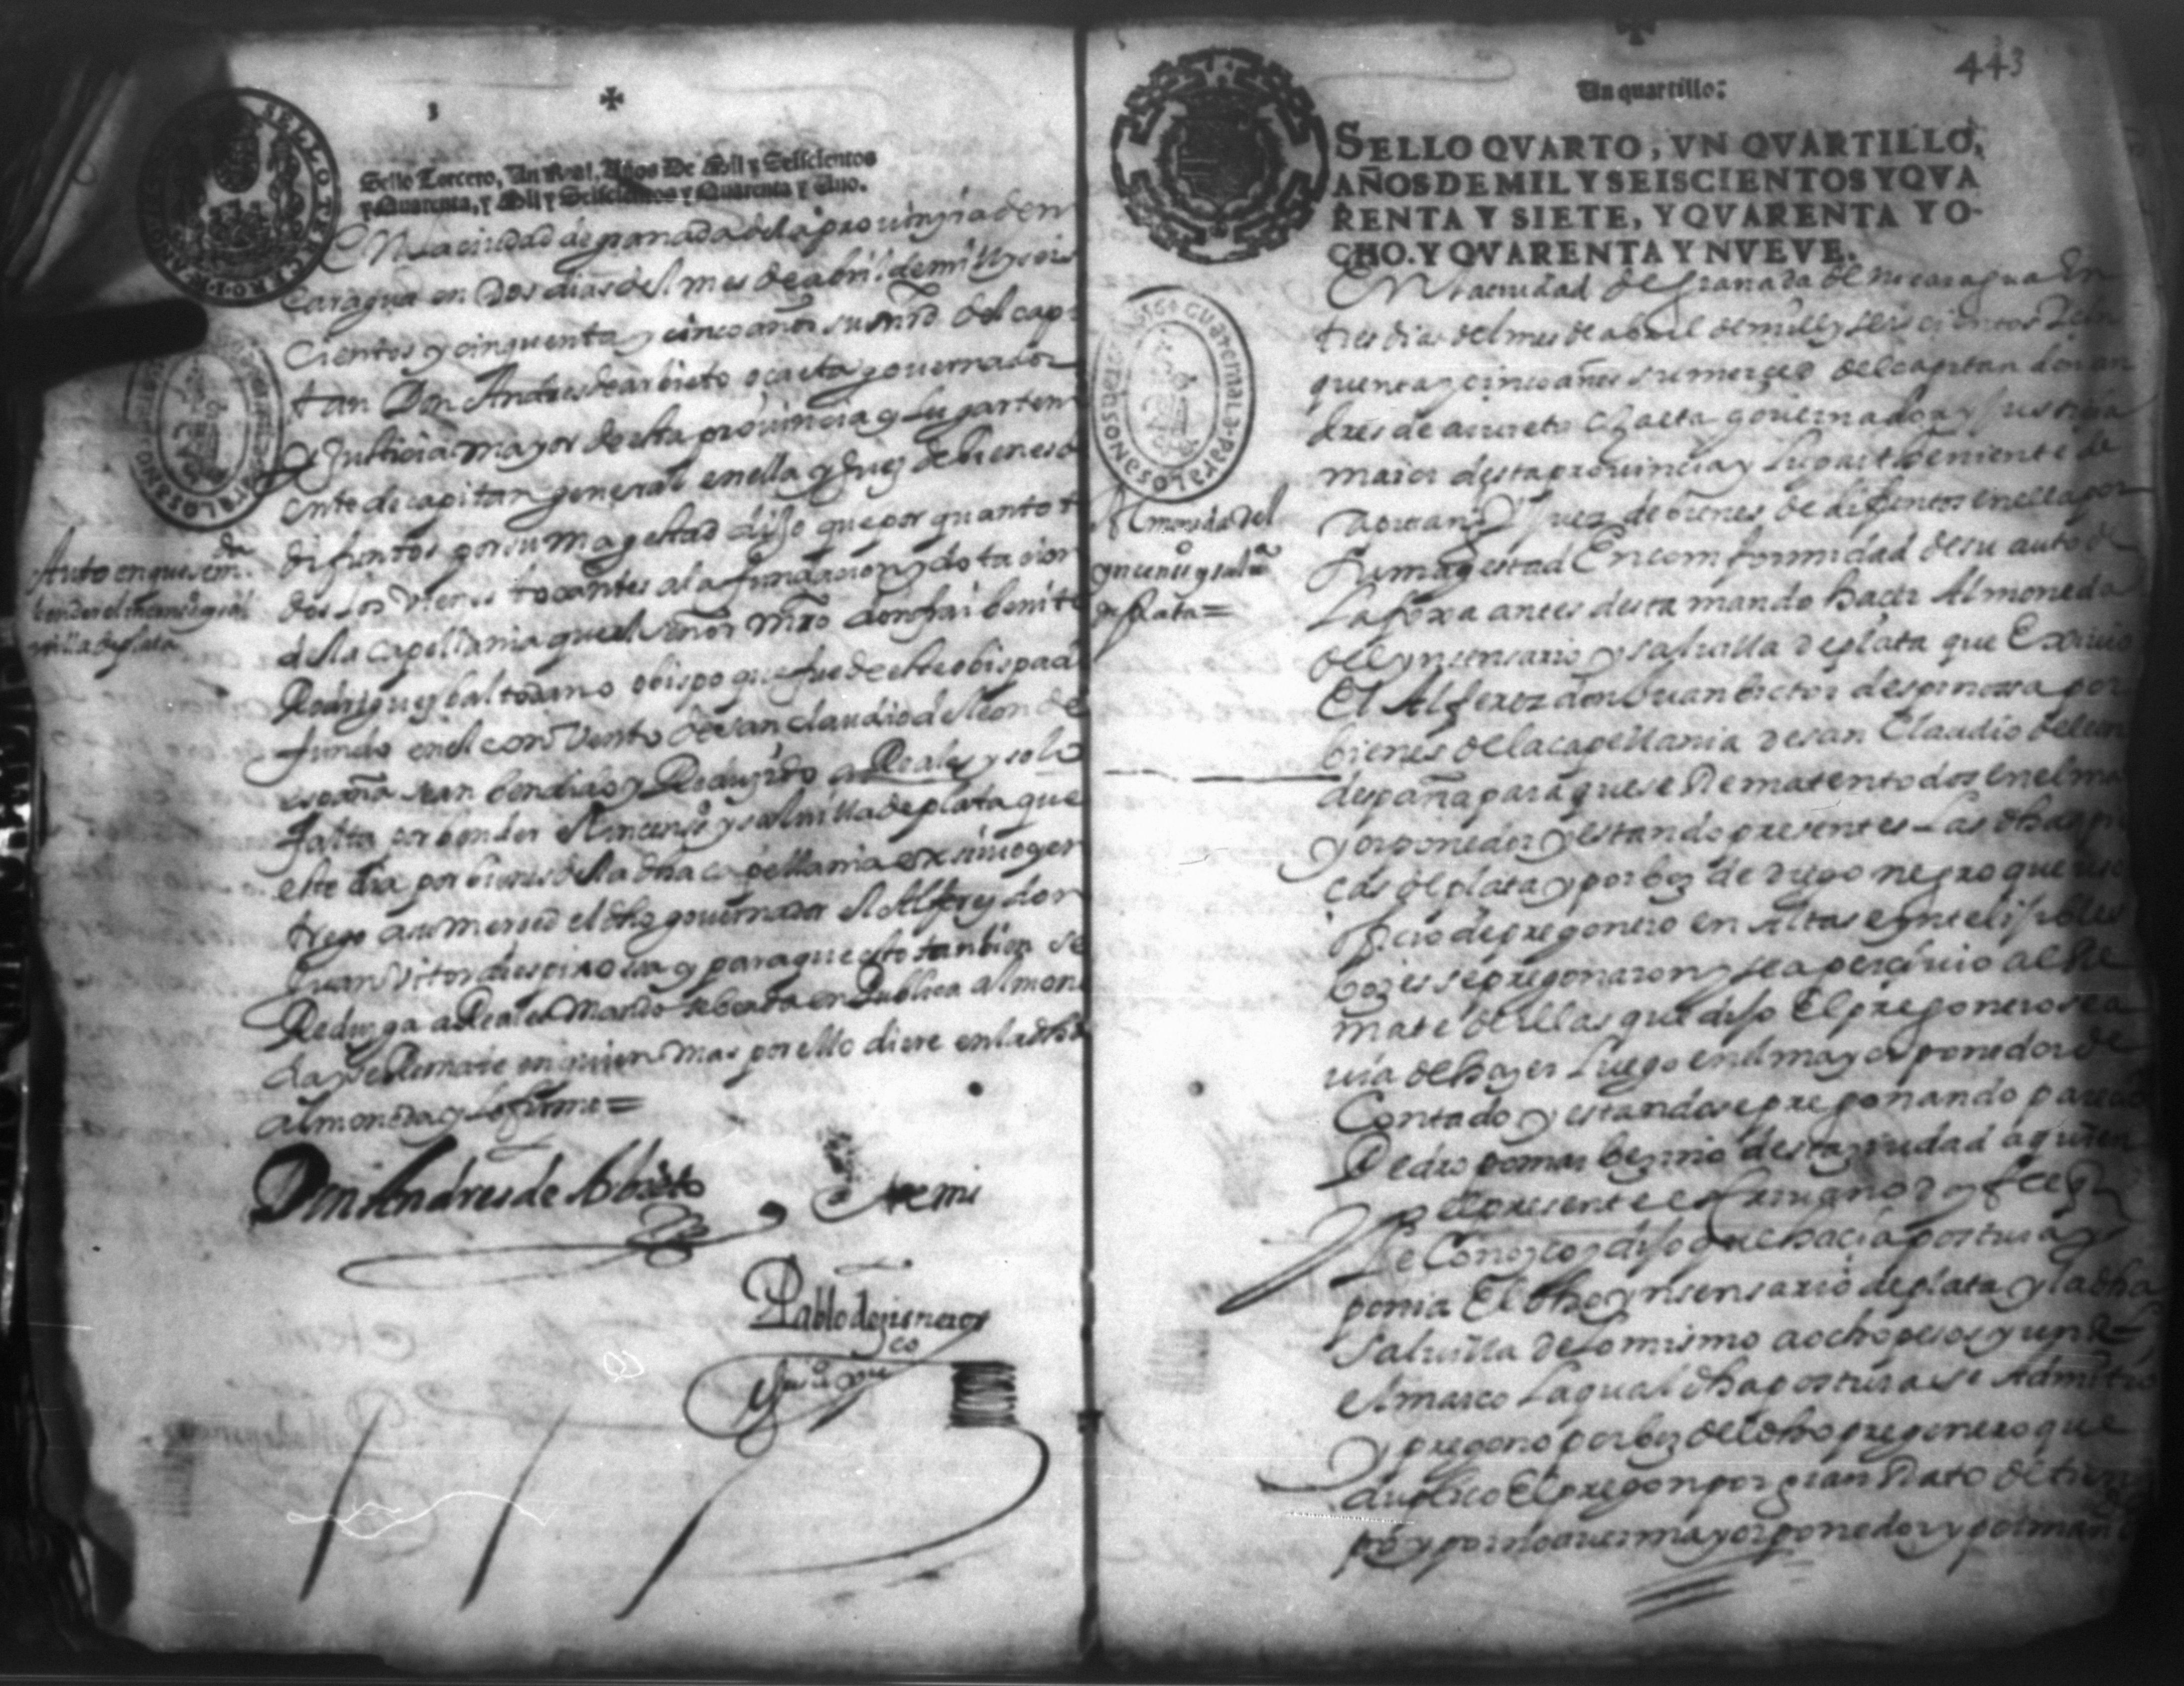 3
SELLO TERCERO
Sello Tercero, Un Real, Años De Mil y Seiscientos
y Quarenta, y Mil y Seiscientos y Quarenta y Uno.
En la ciudad de granada de la provinçia de ni
caragua en dos dias del mes de abril de mill y seis
cientos y cinquenta y cinco años su mrd del capi
tan Don Andres de arbieto ocaeta governador
y Justicia mayor desta provincia y lugar teni
ente de capitan general en ella y Juez de bienes de
difuntos por su magestad dijo que por quanto
dos los vienes tocantes a la fundacion y dotacion
de la capellania que el señor mro don frai benito
Rodriguez baltodano obispo que fue de este obispado
fundo en el conVento de san claudio de leon de
españa sean bendido y Reduzido a Reales y solo
falta por bender el yncensº y salvilla de plata que
este dia por bienes de la dha capellania exsivio y en
trego a su merced el dho governador el Alferez don
Juan Vitor despinossa y para que esto tanbien se
Reduzga a Reales mando se benda en Publica almone
da y se Remate en quien mas por ello diere en la dha
almoneda y lo firmo =
Auto en que se m. da
bender el yncensº y sal
villa de plata
Don Andres de Arbieto
Ante mi
Pablo de
443
Un quartillo:
SELLO QVARTO, VN QVARTILLO,
AÑOS DE MIL Y SEISCIENTOS Y QVA
RENTA Y SIETE, Y QVARENTA Y O-
CHO. Y QVARENTA Y NVEVE.
En la ciudad de Granada de nicaragua En
tres dias del mes de abril de mill y seis cientos
quenta y cinco años su merçed del capitan don an
dres de arvieto ocaeta governador y Justicia
maior desta provincia y Lugar theniente de
capitan y Juez de bienes de difuntos en ella por
su magestad En comformidad de su auto de
La foxa antes desta mando hacer Almoneda
del ynsensario y salvilla de plata que Exivio
El Alferez don Juan bictor despinossa por
bienes de la capellania de san Claudio de leon
despaña para que se Rematen todos en el ma
yor ponedor y estando presentes Las dhas pi
cas de plata y por boz de diego negro que
oficio de pregonero en altas e yntelijibles
bozes se pregonaron y se apercivio al Re
mate de ellas que dijo El pregonero se a
via de hazer Luego en el mayor ponedor de
Contado y estandose pregonando parecio
Pedro gomar bezino desta ciudad a quien
yo el presente escrivano doy fee que
le Conozco y dijo que hacia postura y
ponia El dho ynsensario de plata y la dha
salvilla de lo mismo a ocho pesos y un Rl
el marco La qual dha postura se Admitio
y pregono por boz del dho pregonero que
duplico El pregon por gran Rato de tien
po y por no aver mayor ponedor y por man
Almoneda del
ynsensº y salvª
de plata =